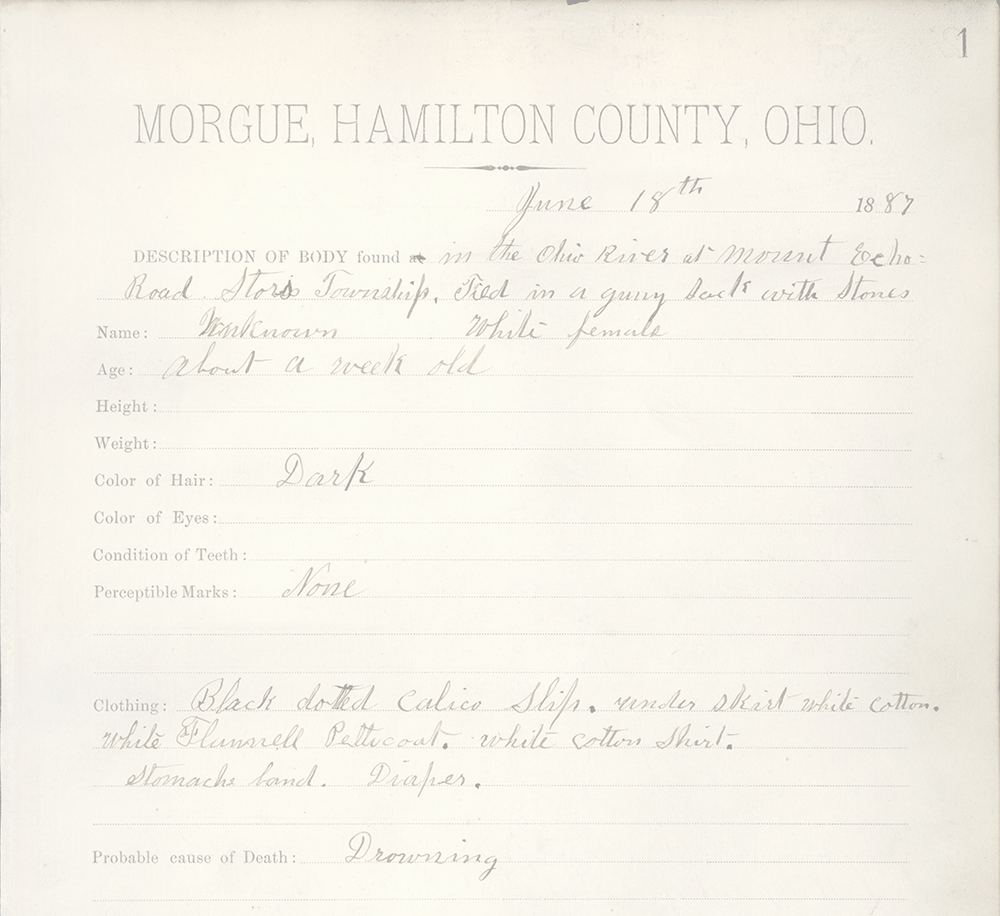 1
MORGUE, HAMILTON COUNTY, OHIO.
June 18th 1887
DESCRIPTION OF BODY found at in the Ohio River at Mount Echo=
Road. Storis Township. Tied in a guny Sack with Stones
Name: Unknown White female
Age: About a week old
Height:
Weight:
Color of Hair: Dark
Color of Eyes:
Condition of Teeth:
Perceptible Marks: None
Clothing: Black dotted Calico Slip. under skirt white cotton.
white Flannell Petticoat. white cotton Shirt.
Stomache band. Diaper.
Probable cause of Death: Drowning